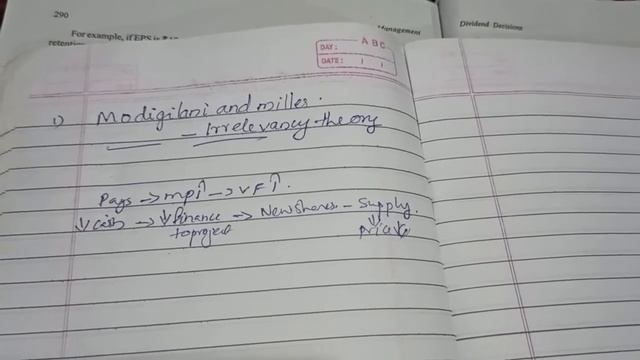 290
Management
Dividend Decisions
For example, if EPS is
retention
DAY: A B C
DATE:
1) Modigilani and milles.
— Irrelevancy theory
Pays → mp↑ → VF↑.
↓ cash → ↓ finance → New shares – Supply.
to project ↓
Price